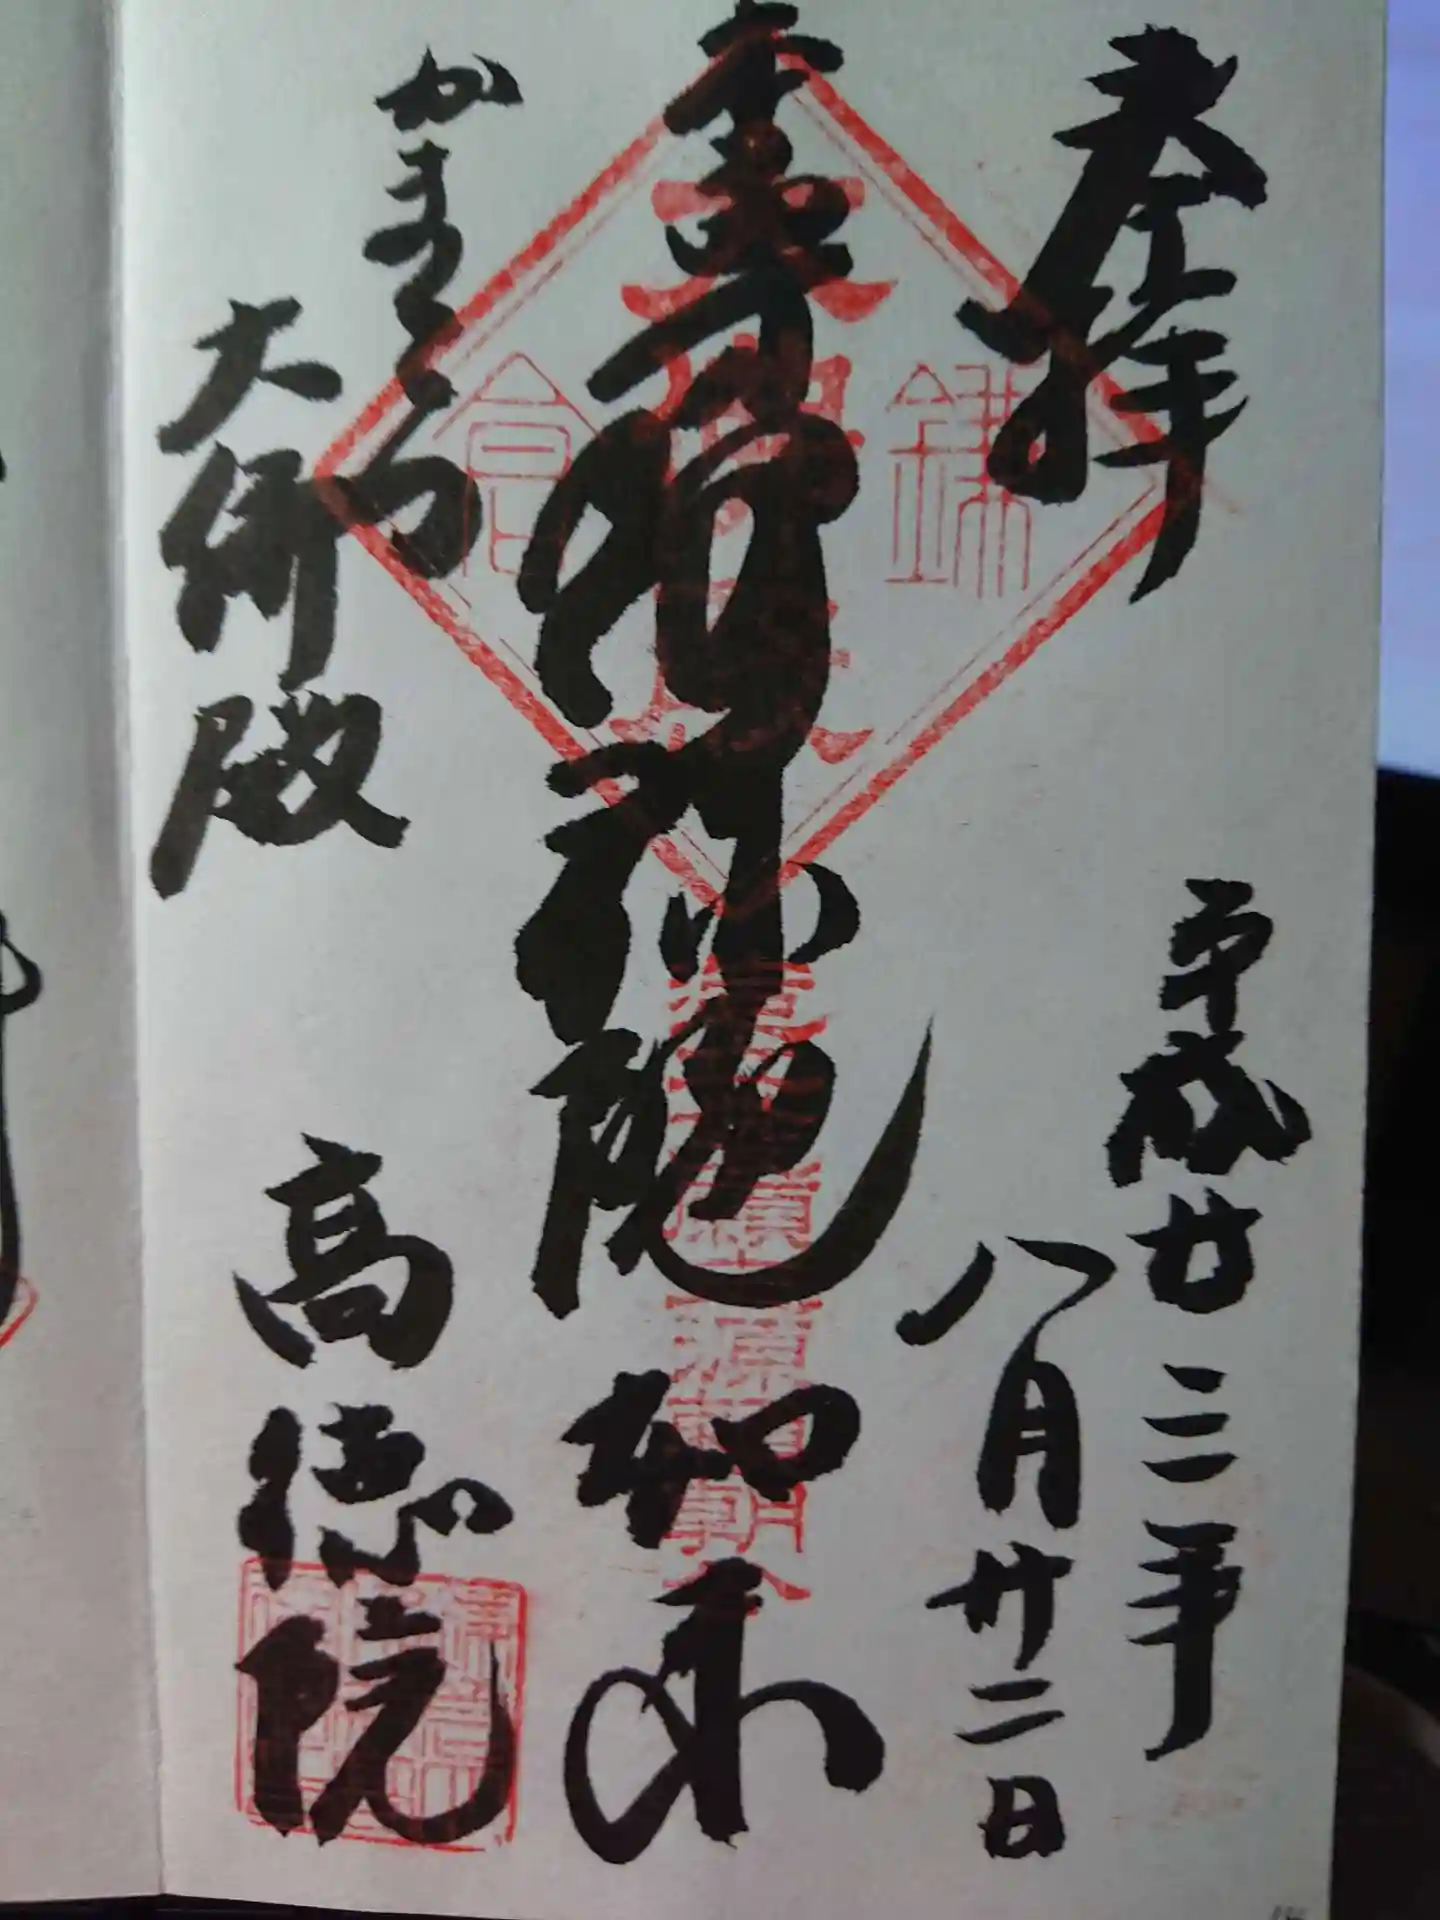 奉拝
平成廿三年
八月廿二日
本尊阿弥陀如来
かまくら
大佛殿
高徳院
鎌倉